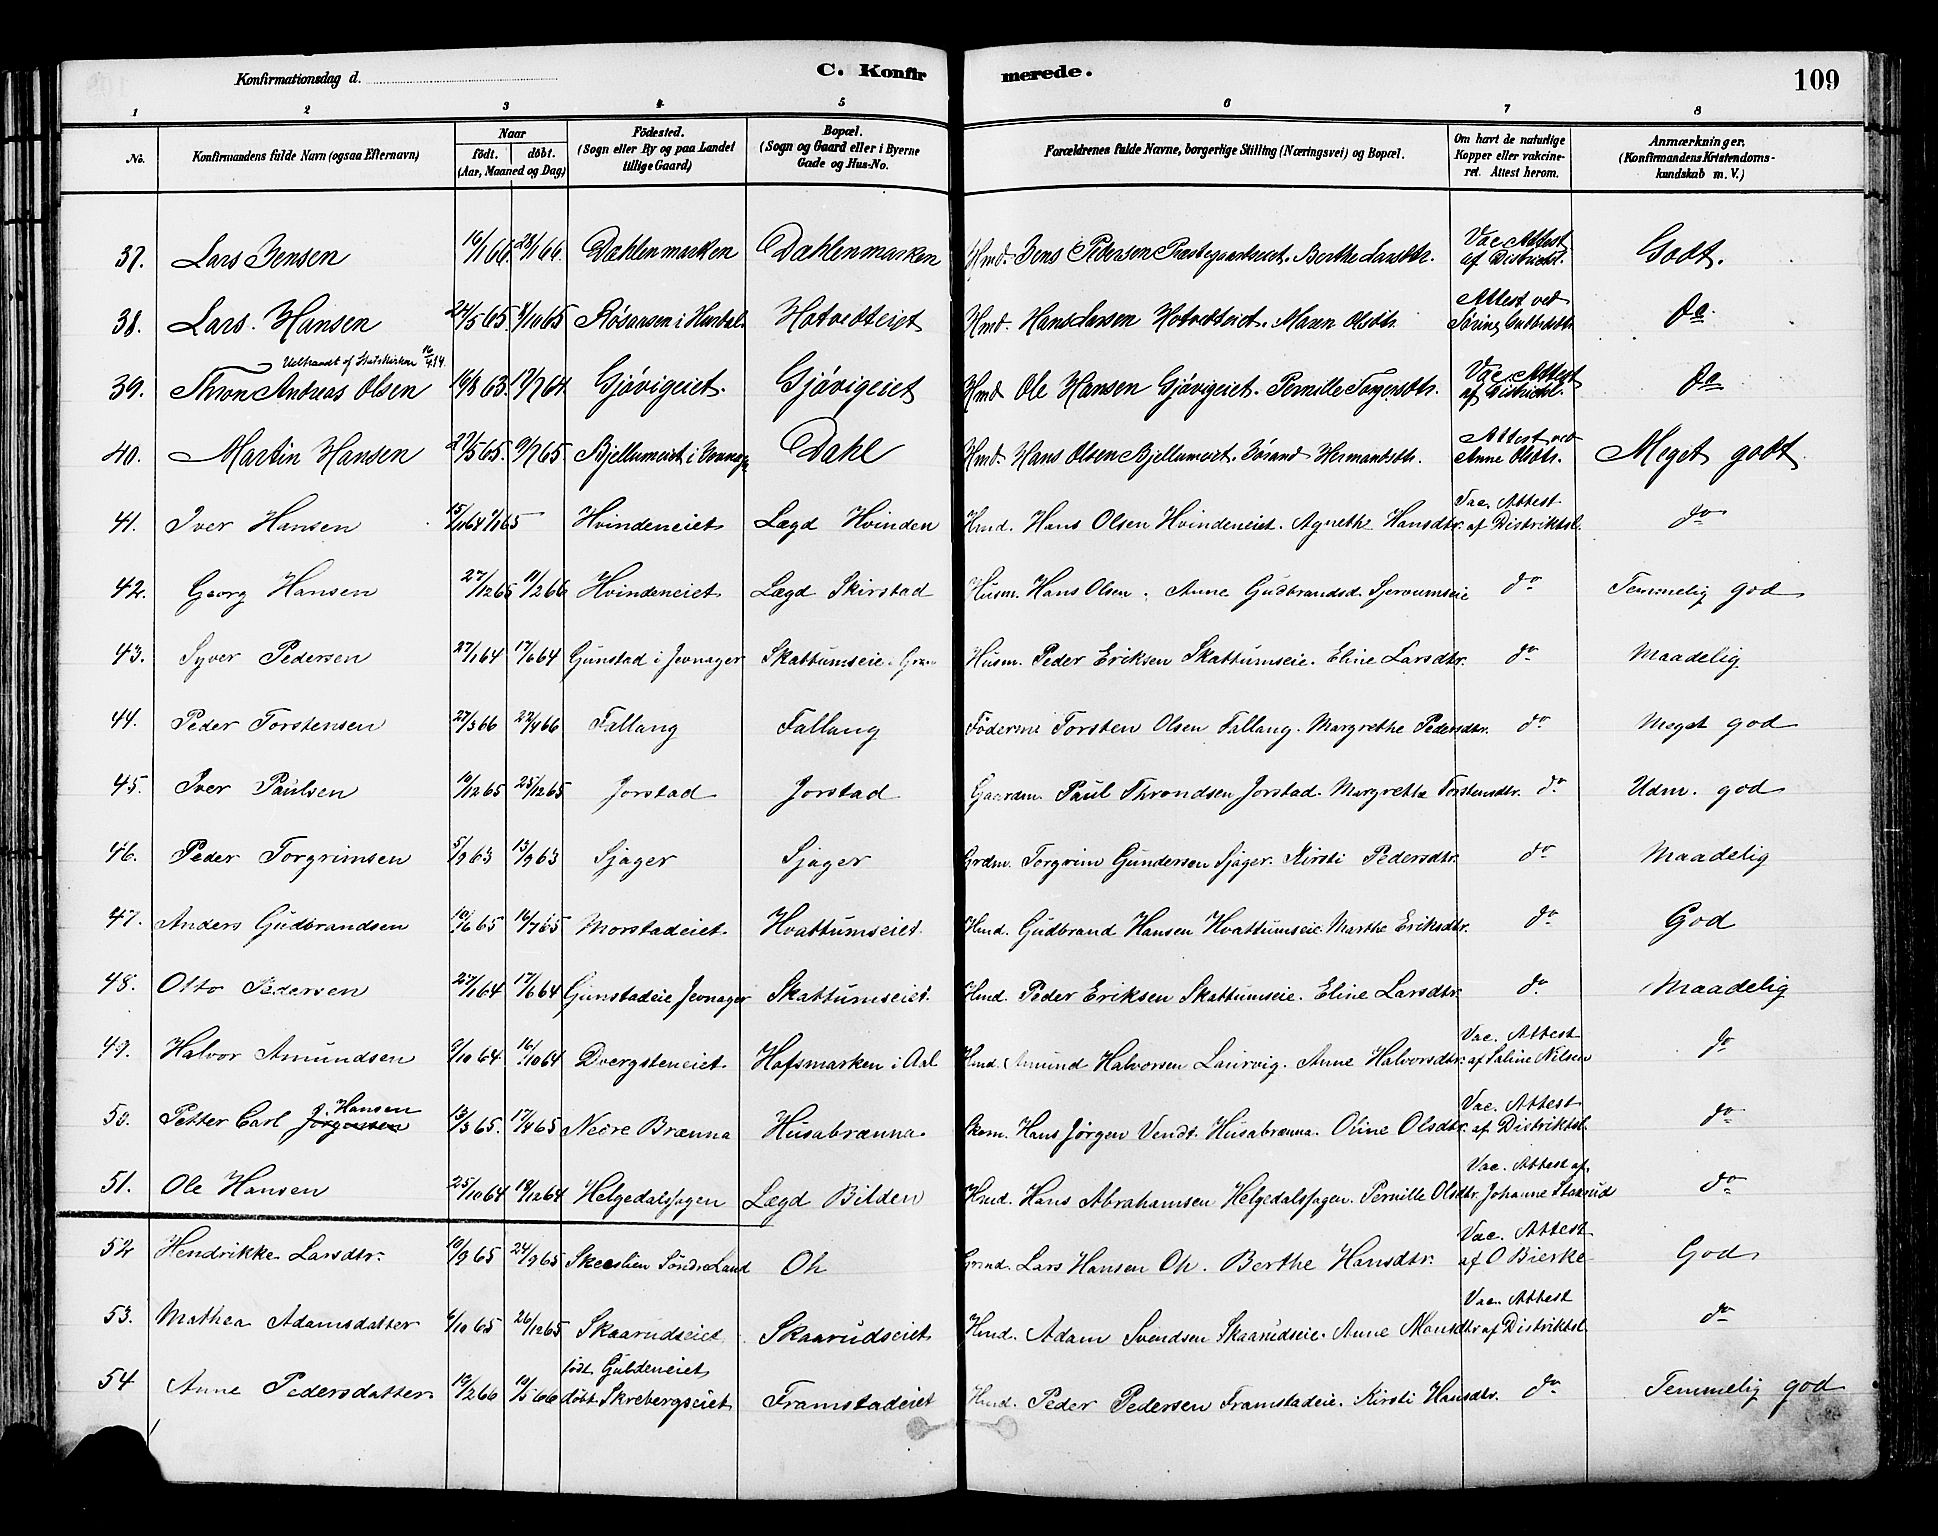 Konfirmationsdag d. C. Konfirmerede. 109
1 2 3 4 5 6 7 8
No. Konfirmandens fulde Navn (ogsaa Efternavn) Naar født. døbt. (Aar, Maaned og Dag) Födested. (Sogn eller By og paa Landet tillige Gaard) Bopæl. (Sogn og Gaard eller i Byerne Gade og Hus-No. Forældrenes fulde Navne, borgerlige Stilling (Næringsvei) og Bopæl. Om havt de naturlige Kopper eller vakcineret. Attest herom. Anmærkninger. (Konfirmandens Kristendomskundskab m. V.)
37. Lars Jensen 16/1 66. 28/1 66. Dæhlenmarken Dæhlenmarken Hmd. Jens Pedersen Præstegaardseiet. Berthe Larsdtr. Vac. Attest af Distriktsl. Godt.
38. Lars Hansen 24/5 65. 8/10 65 Røsaasen i Hurdal. Hotvedteiet Hmd. Hans Larsen Hotvedteiet. Maren Olsdtr. Attest ved do.
Udtraadt af Statskirken 16/4 14.
39. Thron Andreas Olsen 16/8 63. 17/7 64. Gjøvigeiet. Gjøvigeiet Hmd Ole Hansen Gjøvigeiet. Pernille Torgersdtr. Vac. Attest af Distriktsl. do
40. Martin Hansen 27/5 65. 9/7 65. Bjellumeiet i Dahl Hmd. Hans Olsen Bjellumeiet. Jørand Hermandsdtr. Attest ved Anne Olsdtr. Meget godt
41. Iver Hansen 15/11 64 1/1 65 Hvindeneiet Lægd Hvinden Hmd. Hans Olsen Hvindeneiet. Agnethe Hansdtr. Vac. Attest af Distriktsl. do
42. Georg Hansen 27/12 65 11/2 66 Hvindeneiet Lægd Skirstad Husm. Hans Olsen. Anne Gudbrandsd. Sjovumseie do Temmelig god
43. Syver Pedersen 27/1 64 17/6 64 Gunstad i Jevnager Skattumseie i Gran Husm. Peder Eriksen Skattumseie. Eline Larsdtr. do Maadelig
44. Peder Torstensen 27/3 66 22/4 66 Fallang Fallang Föderm Torsten Olsen Fallang. Margrethe Pedersdtr. do Meget god
45. Iver Paulsen 10/12 65 25/12 65 Jorstad Jorstad Gaardm. Paul Throndsen Jorstad. Margrethe Torstensdtr. do Udm. god
46. Peder Torgrimsen 5/9 63 13/9 63 Sjager Sjager Grdm. Torgrim Gundersen Sjager. Kirsti Pedersdtr. do Maadelig
47. Anders Gudbrandsen 10/6 65 16/7 65 Morstadeiet. Hvattumseiet. Hmd. Gudbrand Hansen Hvattumseie. Marthe Eriksdtr. do God
48. Otto Pedersen 27/1 64 17/6 64 Gunstadeie Jevnager Skattumseiet. Hmd. Peder Eriksen Skattumseie. Eline Larsdtr. do Maadelig
49. Halvor Amundsen 9/10 64 16/10 64 Dvergsteneiet. Hofsmarken i Aal Hmd. Amund Halvorsen Laurvig. Anne Halvorsdtr. Vac. Attest af Saline Nilsen do
50. Petter Carl Jörgensen J. Hansen 13/3 65. 17/4 65 Nedre Brænna Husabrænna. Skom. Hans Jörgen Vendt. Husabrænna. Oline Olsdtr. Vac. Attest af Distriktsl. do
51. Ole Hansen 25/10 64 18/12 64 Helgedalshagen Lægd Bilden Hmd. Hans Abrahamsen Helgedalshagen. Pernille Olsdtr. Vac. Attest af Johanne Staxrud do
52 Hendrikke Larsdtr. 10/9 65 24/9 65 Skeeslien Søndre Land Oh Grmd. Lars Hansen Oh. Berthe Hansdtr. Vac. Attest af O Bierke God
53. Mathea Adamsdatter 6/10 65 26/12 65 Skaarudseiet Skaarudseiet Hmd. Adam Svendsen Skaarudseie. Anne Monsdtr. Vac. Attest af Distriktsl. do
54 Anne Pedersdatter 19/2 66 10/5 66 født Guldeneiet døbt Skrebergseiet Framstadeiet Hmd. Peder Pedersen Framstadeie. Kirsti Hansdtr. do Temmelig god